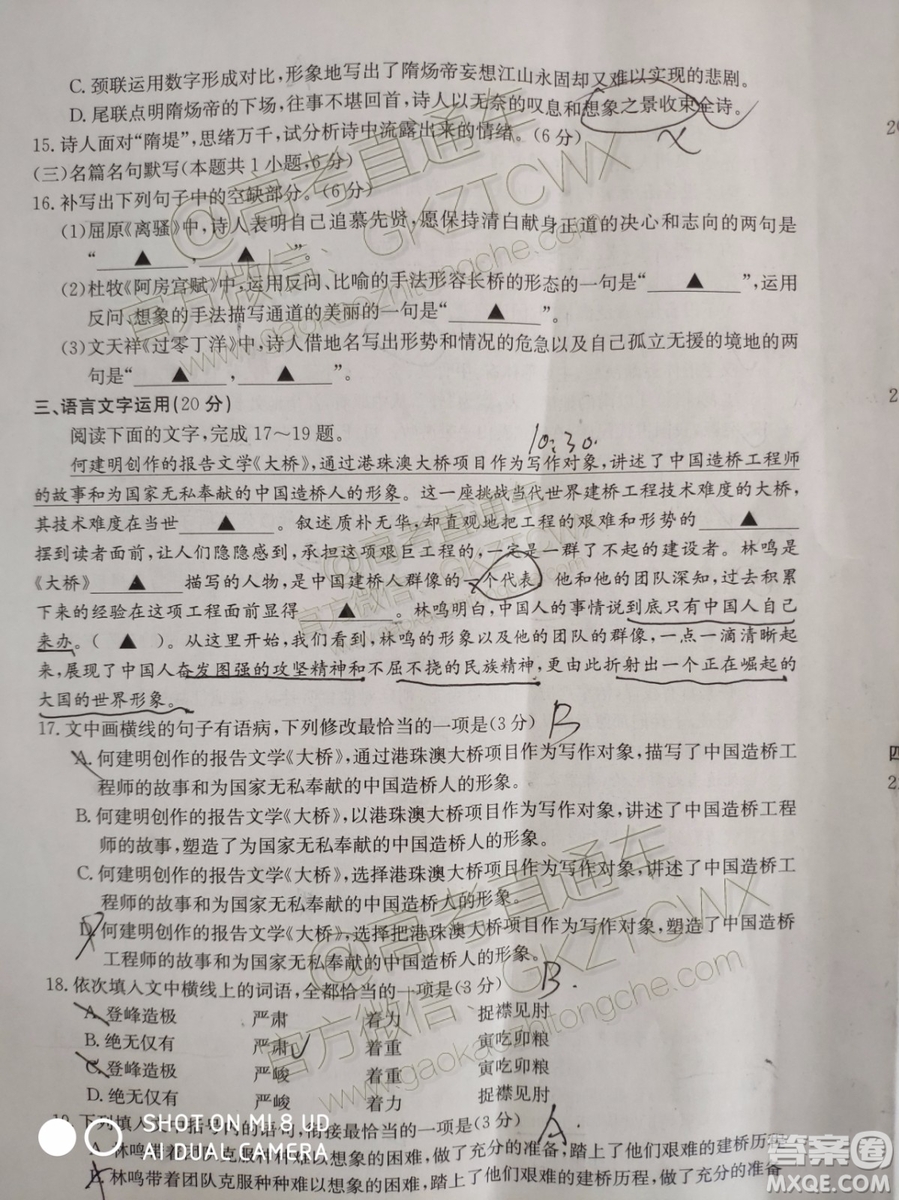 C. 颈联运用数字形成对比,形象地写出了隋炀帝妄想江山永固却又难以实现的悲剧。
D. 尾联点明隋炀帝的下场,往事不堪回首,诗人以无奈的叹息和想象之景收束全诗。
15. 诗人面对“隋堤”,思绪万千,试分析诗中流露出来的情绪。(6分)
(三)名篇名句默写(本题共1小题,6分)
16. 补写出下列句子中的空缺部分。(6分)
(1)屈原《离骚》中,诗人表明自己追慕先贤,愿保持清白献身正道的决心和志向的两句是
“ ▲ , ▲ ”。
(2)杜牧《阿房宫赋》中,运用反问、比喻的手法形容长桥的形态的一句是“ ▲ ”,运用
反问、想象的手法描写通道的美丽的一句是“ ▲ ”。
(3)文天祥《过零丁洋》中,诗人借地名写出形势和情况的危急以及自己孤立无援的境地的两
句是“ ▲ , ▲ ”。
三、语言文字运用(20分)
阅读下面的文字,完成17~19题。
10:30.
何建明创作的报告文学《大桥》,通过港珠澳大桥项目作为写作对象,讲述了中国造桥工程师
的故事和为国家无私奉献的中国造桥人的形象。这一座挑战当代世界建桥工程技术难度的大桥,
其技术难度在当世 ▲ 。叙述质朴无华,却直观地把工程的艰难和形势的 ▲
摆到读者面前,让人们隐隐感到,承担这项艰巨工程的,一定是一群了不起的建设者。林鸣是
《大桥》 ▲ 描写的人物,是中国建桥人群像的一个代表。他和他的团队深知,过去积累
下来的经验在这项工程面前显得 ▲ 。林鸣明白,中国人的事情说到底只有中国人自己
来办。( ▲ )。从这里开始,我们看到,林鸣的形象以及他的团队的群像,一点一滴清晰起
来,展现了中国人奋发图强的攻坚精神和不屈不挠的民族精神,更由此折射出一个正在崛起的
大国的世界形象。
17. 文中画横线的句子有语病,下列修改最恰当的一项是(3分) B
A. 何建明创作的报告文学《大桥》,通过港珠澳大桥项目作为写作对象,描写了中国造桥工
程师的故事和为国家无私奉献的中国造桥人的形象。
B. 何建明创作的报告文学《大桥》,以港珠澳大桥项目作为写作对象,讲述了中国造桥工程
师的故事,塑造了为国家无私奉献的中国造桥人的形象。
C. 何建明创作的报告文学《大桥》,选择港珠澳大桥项目作为写作对象,讲述了中国造桥工
程师的故事和为国家无私奉献的中国造桥人的形象。
D. 何建明创作的报告文学《大桥》,选择把港珠澳大桥项目作为写作对象,塑造了中国造桥
工程师的故事和为国家无私奉献的中国造桥人的形象。
18. 依次填入文中横线上的词语,全都恰当的一项是(3分) B.
A. 登峰造极 严肃 着力 捉襟见肘
B. 绝无仅有 严肃 着重 寅吃卯粮
C. 登峰造极 严峻 着重 寅吃卯粮
D. 绝无仅有 严峻 着力 捉襟见肘
19. 下列填入文中括号内的语句,衔接最恰当的一项是(3分) A
林鸣带着团队克服种种难以想象的困难,做了充分的准备,踏上了他们艰难的建桥历程
林鸣带着团队克服种种难以想象的困难,踏上了他们艰难的建桥历程,做了充分的准备
SHOT ON MI 8 UD
AI DUAL CAMERA
@高考直通车
GKZTCWX
官方微信:
www.gaokaozhitongche.com
@高考直通车
GKZTCWX
官方微信:
www.gaokaozhitongche.com
答案圈
MXQE.COM